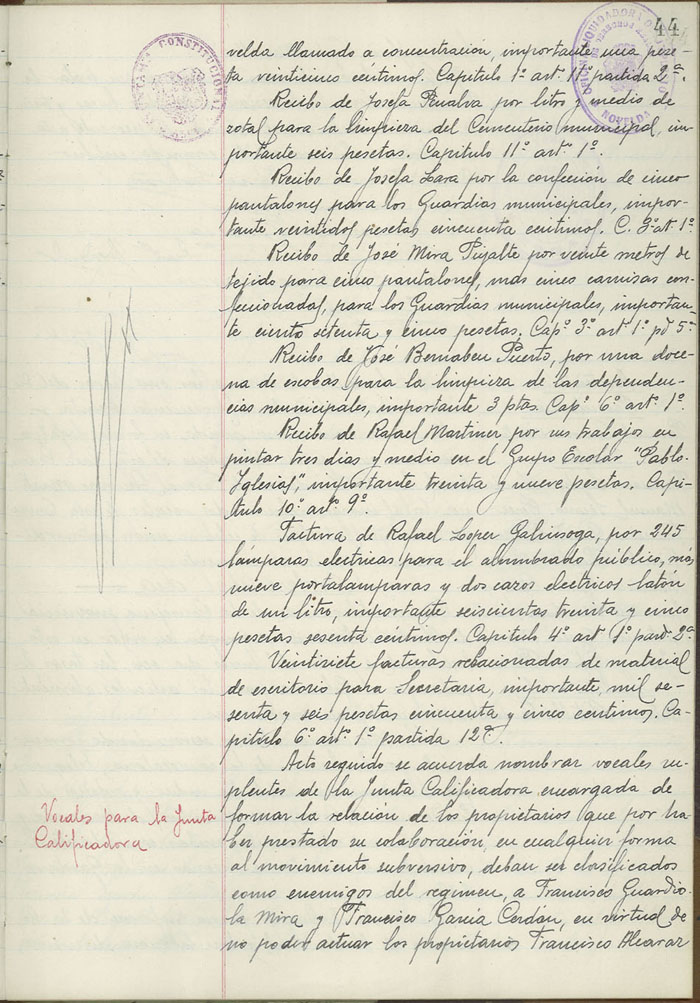 44
velda llamado a concentración, importante una pese-
ta veinticinco céntimos. Capitulo 1º art. 11º partida 2ª.
Recibo de Josefa Penalva por litro y medio de
zotal para la limpieza del Cementerio municipal, im-
portante seis pesetas. Capitulo 11º artº 1º.
Recibo de Josefa Lara por la confección de cinco
pantalones para los Guardias municipales, impor-
tante veintidos pesetas cincuenta centimos. C. 3º artº 1º
Recibo de José Mira Pujalte por veinte metros de
tejido para cinco pantalones, mas cinco camisas con-
feccionadas, para los Guardias municipales, importan-
te ciento setenta y cinco pesetas. Capº 3º artº 1º pª 5ª
Recibo de José Bernabeu Puerto, por una doce-
na de escobas para la limpieza de las dependen-
cias municipales, importante 3 ptas. Capº 6º artº 1º.
Recibo de Rafael Martinez por sus trabajos en
pintar tres dias y medio en el Grupo Escolar "Pablo
Iglesias", importante treinta y nueve pesetas. Capi-
tulo 10º artº 9º.
Factura de Rafael Lopez Galiusoga, por 245
lámparas electricas para el alumbrado público, mas
nueve portalamparas y dos cazos electricos laton
de un litro, importante seiscientas treinta y cinco
pesetas sesenta céntimos. Capitulo 4º art 1º part. 2ª
Veintisiete facturas relacionadas de material
de escritorio para Secretaria, importante, mil se-
senta y seis pesetas cincuenta y cinco centimos. Ca-
pitulo 6º artº 1º partida 12ª.
Acto seguido se acuerda nombrar vocales su-
plentes de la Junta Calificadora encargada de
formar la relación de los propietarios que por ha-
ber prestado su colaboración, en cualquier forma
al movimiento subversivo, deban ser clasificados
como enemigos del regimen, a Francisco Guardio-
la Mira y Francisco García Cerdan, en virtud de
no poder actuar los propietarios Francisco Alcaraz
Vocales para la Junta
Calificadora